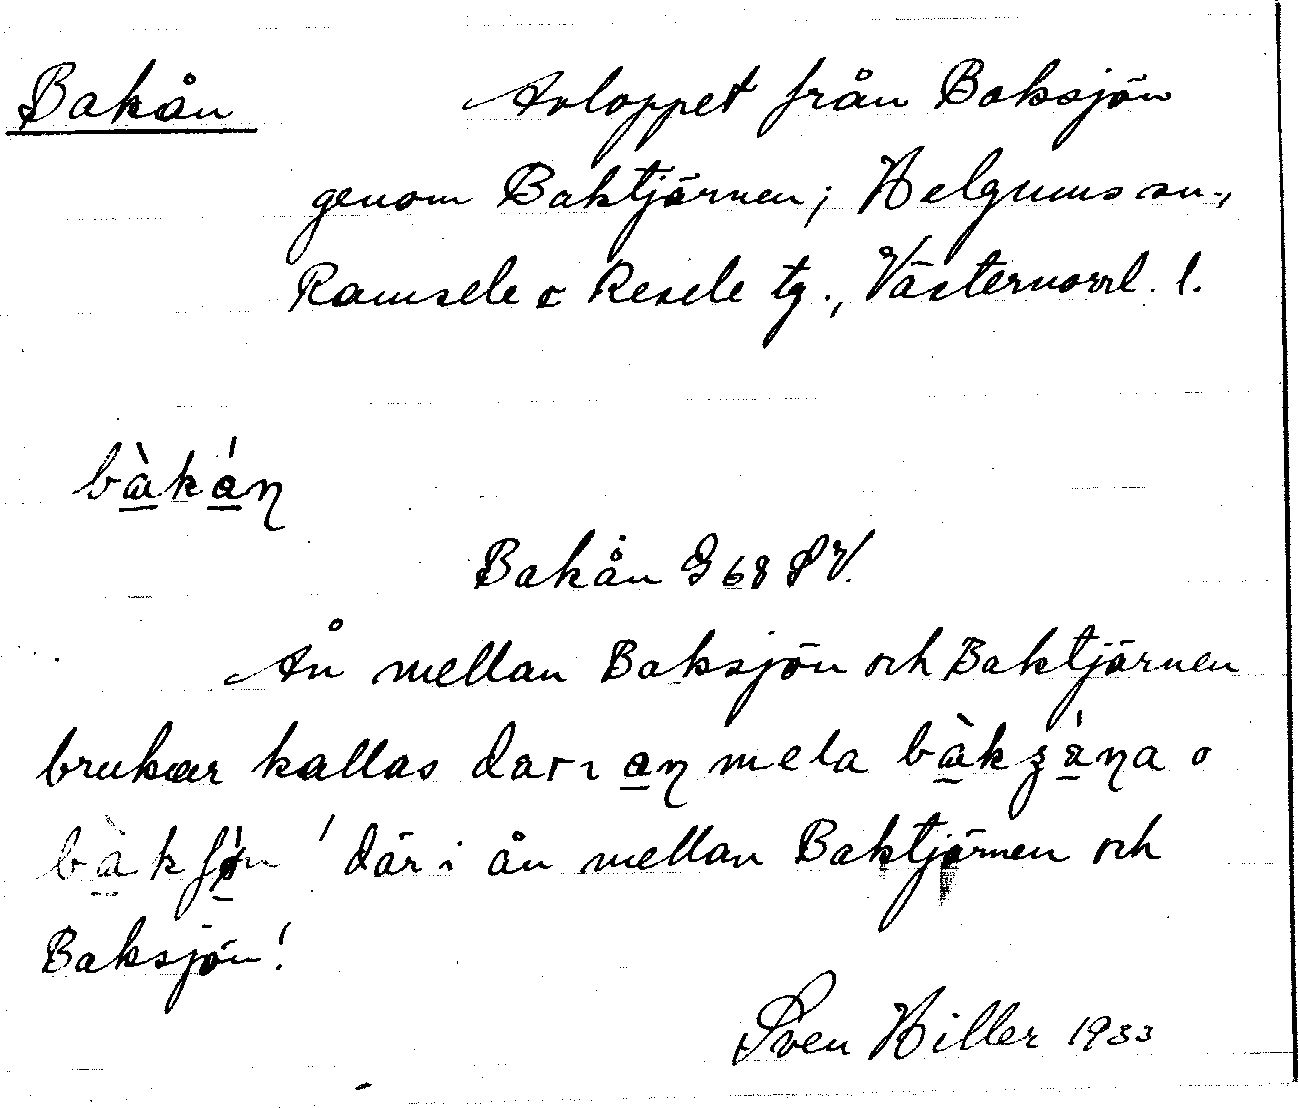 Bakån Avloppet från Baksjön
genom Baktjärnen; Helgums sn.,
Ramsele o Resele tg., Västernorrl. l.
bàkáŋ
Bakån G 68 SV.
Ån mellan Baksjön och Baktjärnen
brukar kallas darı aŋ mela bàk
bàkʃøn 'där i ån mellan Baktjärnen och
Baksjön'.
Sven Hiller 1933